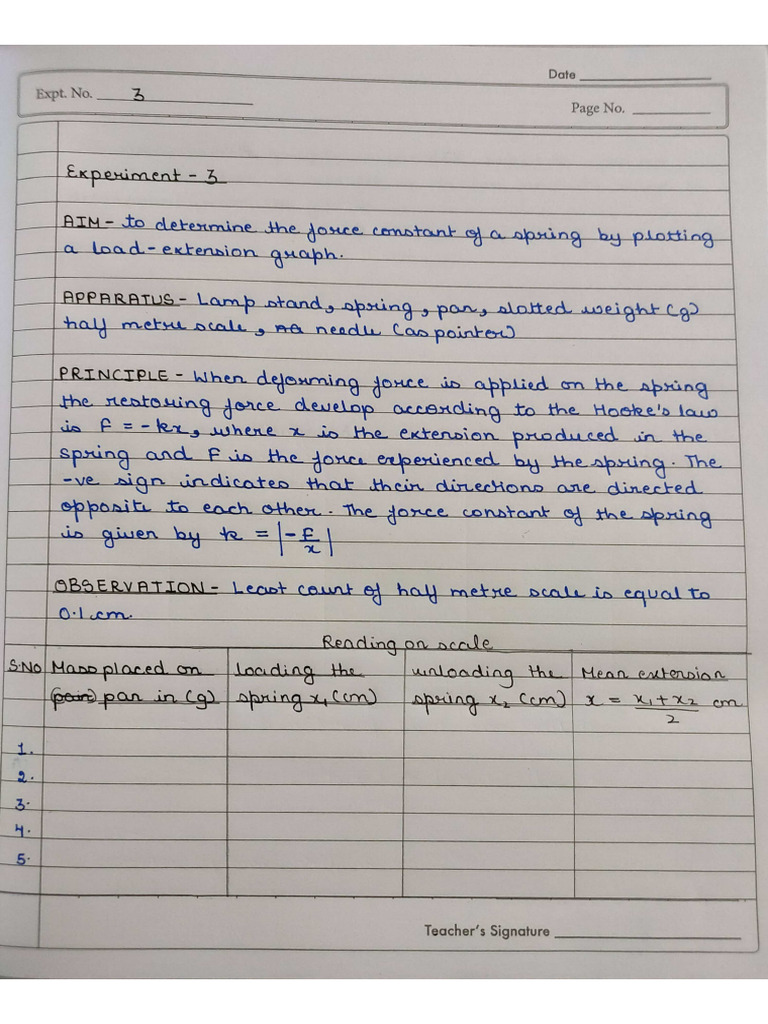 Date
Expt. No. 3
Page No.
Experiment - 3
AIM - to determine the force constant of a spring by plotting
a load-extension graph.
APPARATUS - Lamp stand, spring, pan, slotted weight (g)
half metre scale, needle (as pointer)
PRINCIPLE - When deforming force is applied on the spring
the restoring force develop according to the Hooke's law
is F = -kx, where x is the extension produced in the
spring and F is the force experienced by the spring. The
-ve sign indicates that their directions are directed
opposite to each other. The force constant of the spring
is given by k = |-F/x|
OBSERVATION - Least count of half metre scale is equal to
0.1 cm.
Reading on scale
S.No Mass placed on loading the unloading the Mean extension
(pan) pan in (g) spring x₁ (cm) spring x₂ (cm) x = x₁ + x₂ / 2 cm
1.
2.
3.
4.
5.
Teacher's Signature